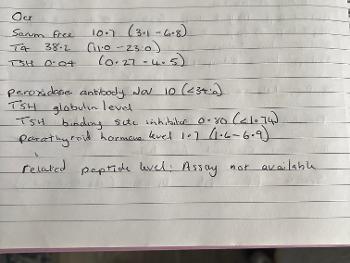 Oct
Serum free 10.7 (3.1 - 6.8)
T4 38.2 (11.0 - 23.0)
TSH 0.04 (0.27 - 4.5)
peroxidase antibody 10 (<34.0)
TSH globulin level
TSH binding site inhibitor 0.80 (<1.74)
parathyroid hormone level 1.7 (1.6 - 6.9)
related peptide level: Assay not available